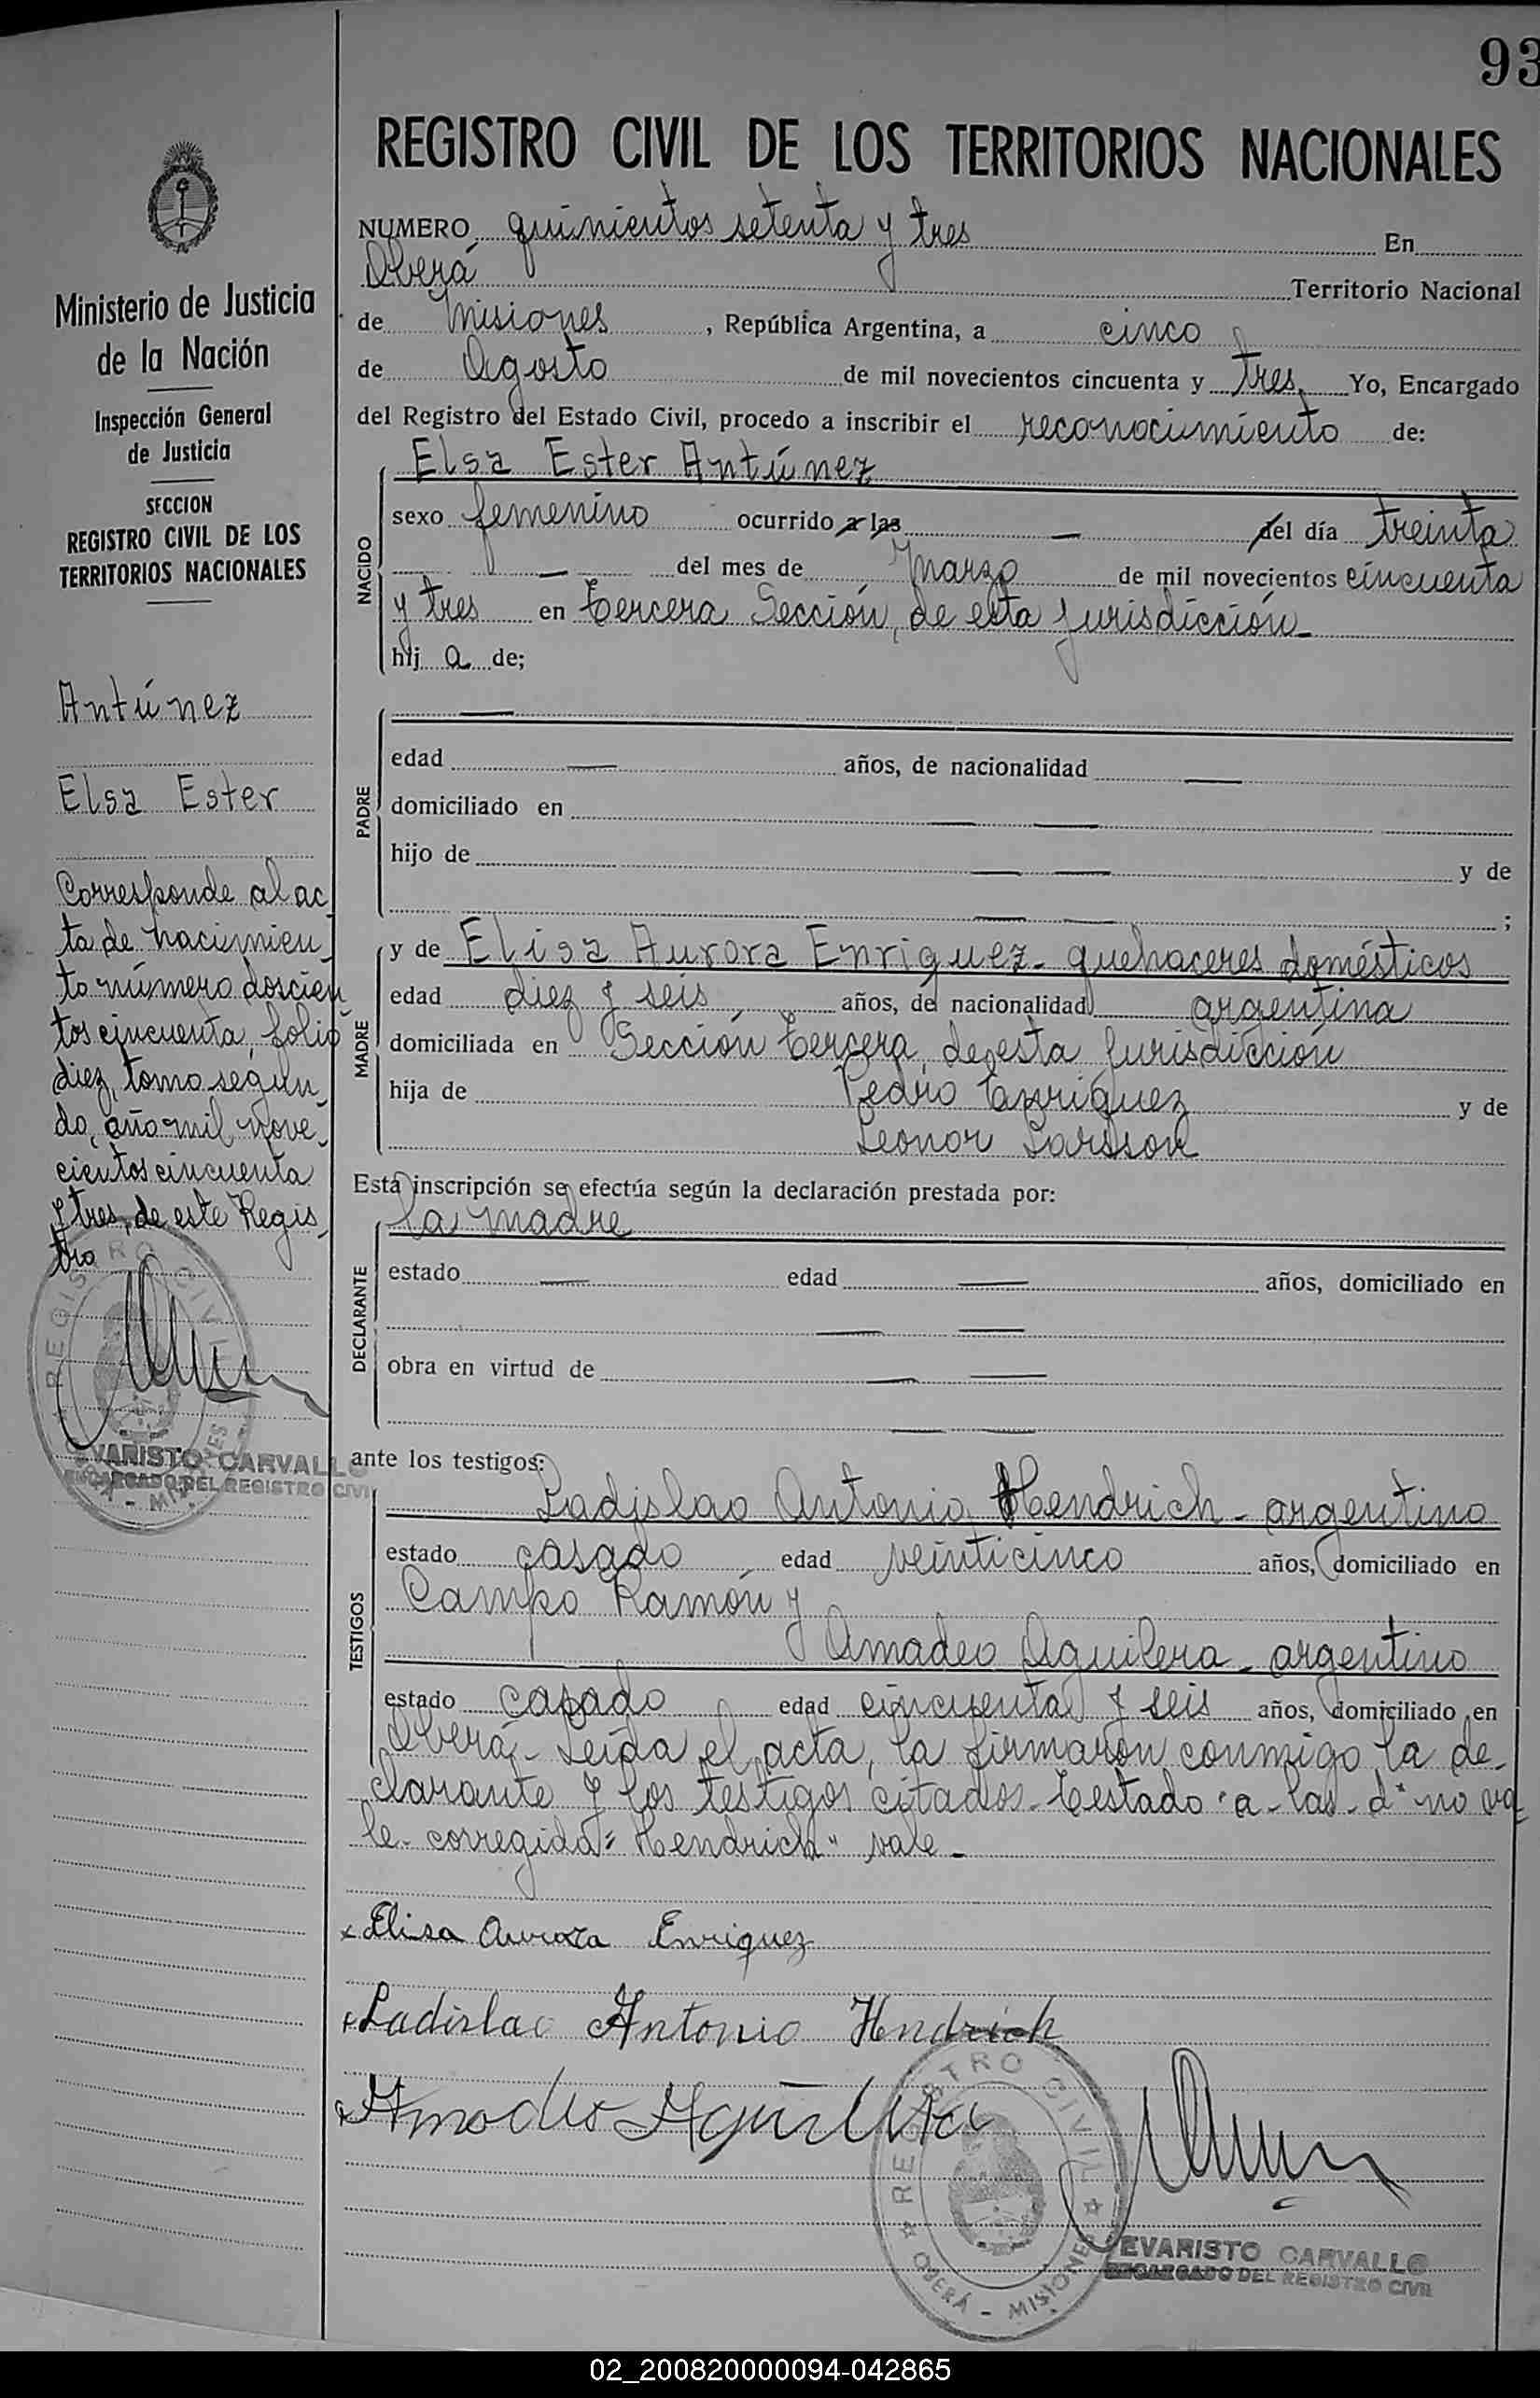 93
REGISTRO CIVIL DE LOS TERRITORIOS NACIONALES
NUMERO quinientos setenta y tres En
Oberá Territorio Nacional
de Misiones, República Argentina, a cinco
de Agosto de mil novecientos cincuenta y tres. Yo, Encargado
del Registro del Estado Civil, procedo a inscribir el reconocimiento de:
NACIDO
Elsa Ester Antúnez
sexo femenino ocurrido a las — del día treinta
— del mes de Marzo de mil novecientos cincuenta
y tres en tercera Sección, de esta jurisdicción_
hij a de;
PADRE
—
edad — años, de nacionalidad —
domiciliado en — —
hijo de — — y de
— — ;
MADRE
y de Elisa Aurora Enriquez - quehaceres domésticos
edad diez y seis años, de nacionalidad argentina
domiciliada en Sección tercera, de esta jurisdicción
hija de Pedro Enriquez y de
Leonor Larsson
Esta inscripción se efectúa según la declaración prestada por:
DECLARANTE
la madre
estado — edad — años, domiciliado en
— —
obra en virtud de — —
— —
ante los testigos:
TESTIGOS
Ladislao Antonio Hendrich - argentino
estado casado edad veinticinco años, domiciliado en
Campo Ramón y
Amadeo Aguilera - argentino
estado casado edad cincuenta y seis años, domiciliado en
Oberá - Leída el acta, la firmaron conmigo la de-
clarante y los testigos citados - testado "a - las - d" no va-
le - corregida = "Hendrich" vale -
x Elisa Aurora Enriquez
x Ladislao Antonio Hendrich
x Amadeo Aguilera
REGISTRO CIVIL
OBERÁ - MISIONES
EVARISTO CARVALLO
ENCARGADO DEL REGISTRO CIVIL
Ministerio de Justicia
de la Nación
Inspección General
de Justicia
SECCION
REGISTRO CIVIL DE LOS
TERRITORIOS NACIONALES
Antúnez
Elsa Ester
Corresponde al ac_
ta de nacimien_
to número doscien
tos cincuenta, folio
diez, tomo segun_
do, año mil nove_
cientos cincuenta
y tres, de este Regis_
tro
REGISTRO CIVIL
MISIONES
EVARISTO CARVALLO
ENCARGADO DEL REGISTRO CIVI
02_200820000094-042865